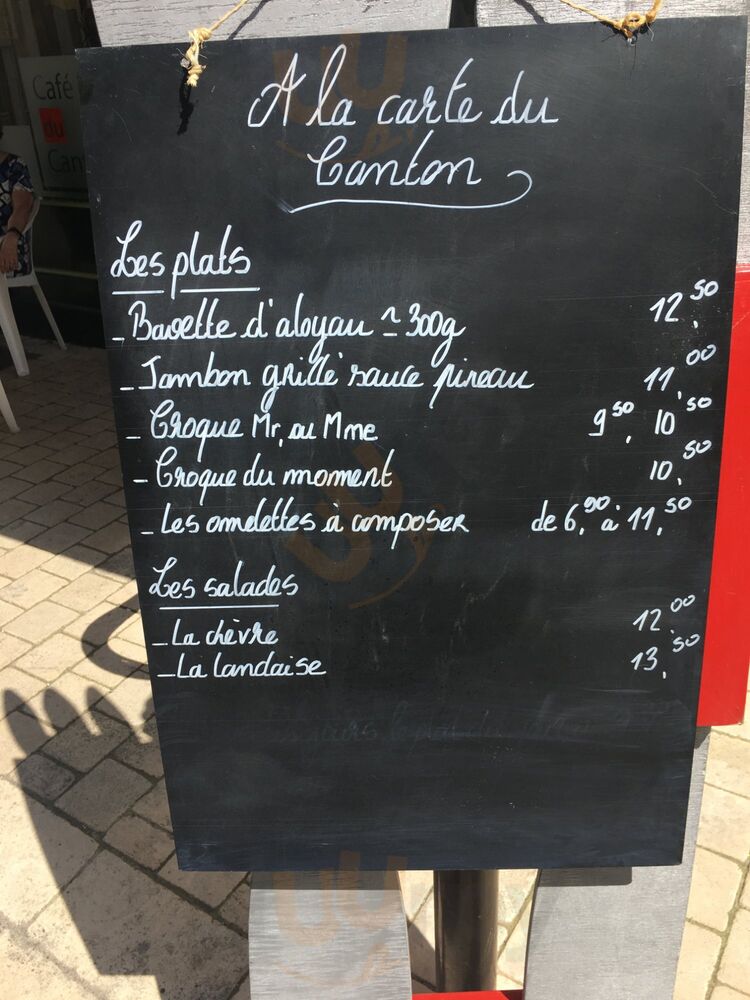 Café
du
Can
A la carte du
Canton
Les plats
- Bavette d'aloyau ~ 300g 12,50
- Jambon grillé sauce pineau 11,00
- Croque Mr, ou Mme 9,50, 10,50
- Croque du moment 10,50
- Les omelettes à composer de 6,90 à 11,50
Les salades
- La chèvre 12,00
- La landaise 13,50